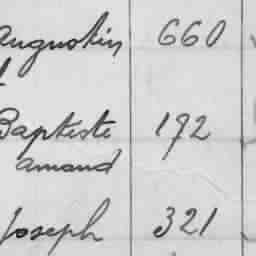 Augustin 660
Baptiste 192
amand
Joseph 321